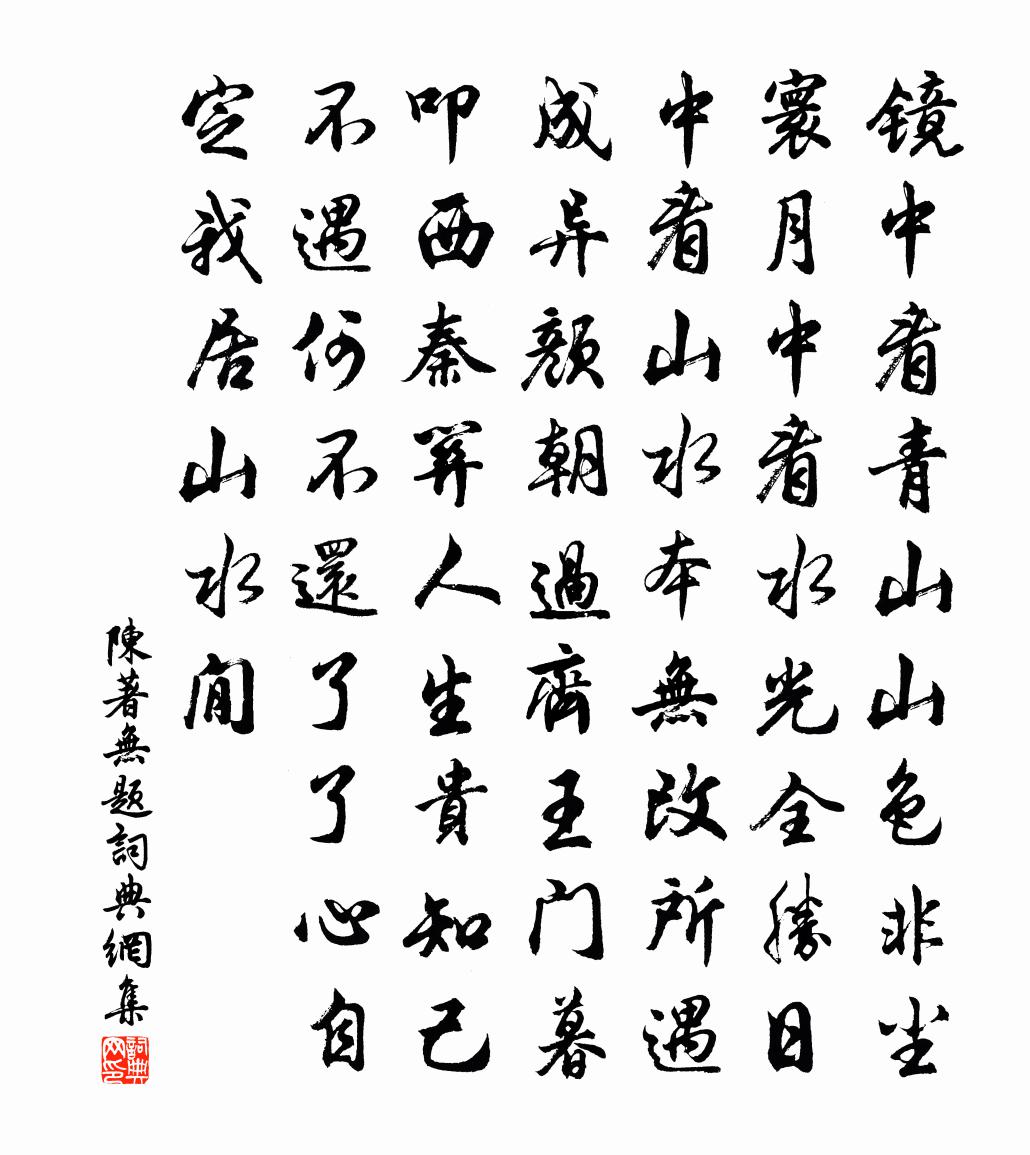 镜中看青山山色非尘
寰月中看水光全勝日
中看山水本無改所遇
成异颜朝過齊王门暮
叩西秦關人生貴知己
不遇何不還了了心自
定我居山水間
陳著無题詞典網集
詞典网印